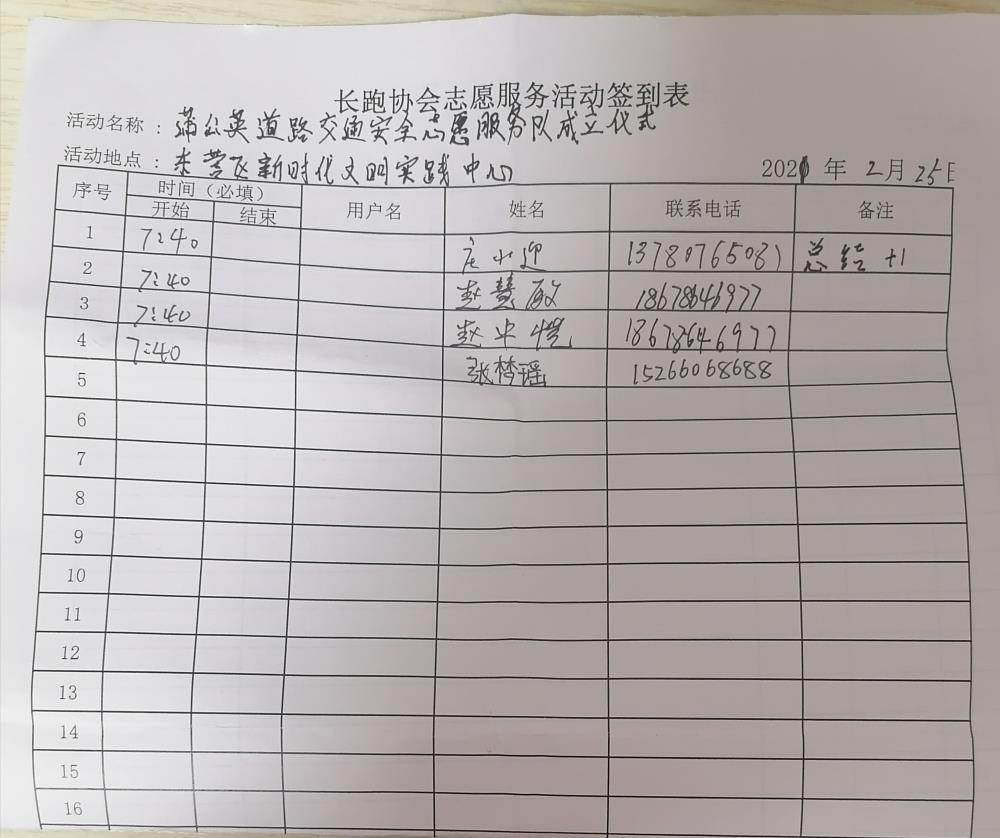 长跑协会志愿服务活动签到表
活动名称：蒲公英道路交通安全志愿服务队成立仪式
活动地点：东营区新时代文明实践中心 2021年2月25日
序号 时间（必填） 用户名 姓名 联系电话 备注
开始 结束
1 7:40 庄小迎 13780765081 总结 +1
2 7:40 赵慧敏 18678646977
3 7:40 赵中悦 18678646977
4 7:40 张梦瑶 15266068688
5
6
7
8
9
10
11
12
13
14
15
16